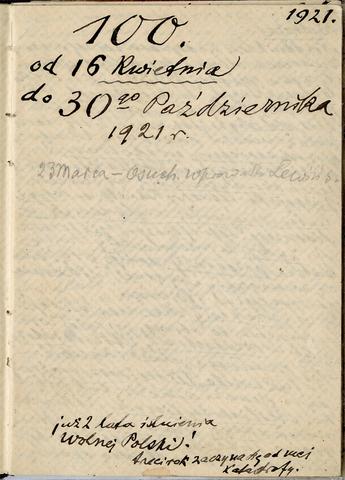 1921.
100.
od 16 Kwietnia
do 30go Października
1921 r.
23 Marca - Osuch.
już 2 lata istnienia
Wolnej Polski!
trzeci rok zaczyna się od
Katastrofy.